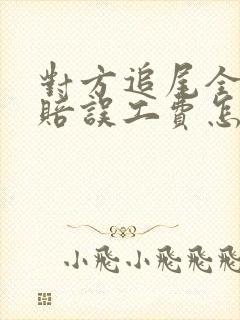 對方追尾全
賠誤工費怎
小飛小飛飛飛